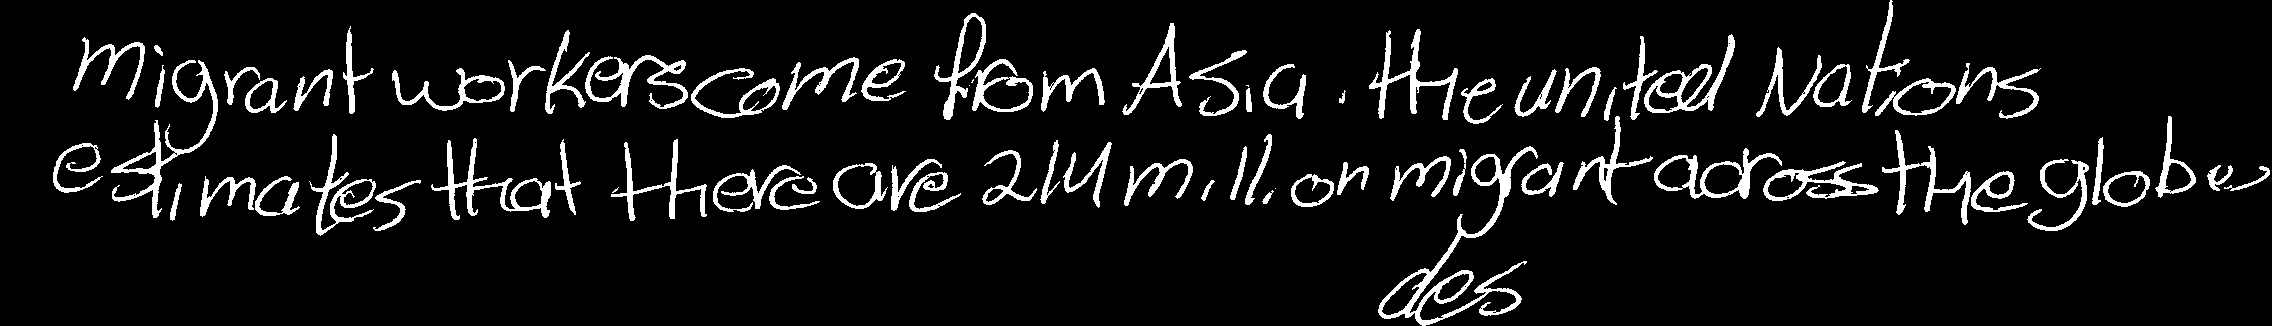 migrant workers come from Asia. The united Nations
estimates that there are 214 million migrant across the globe
des